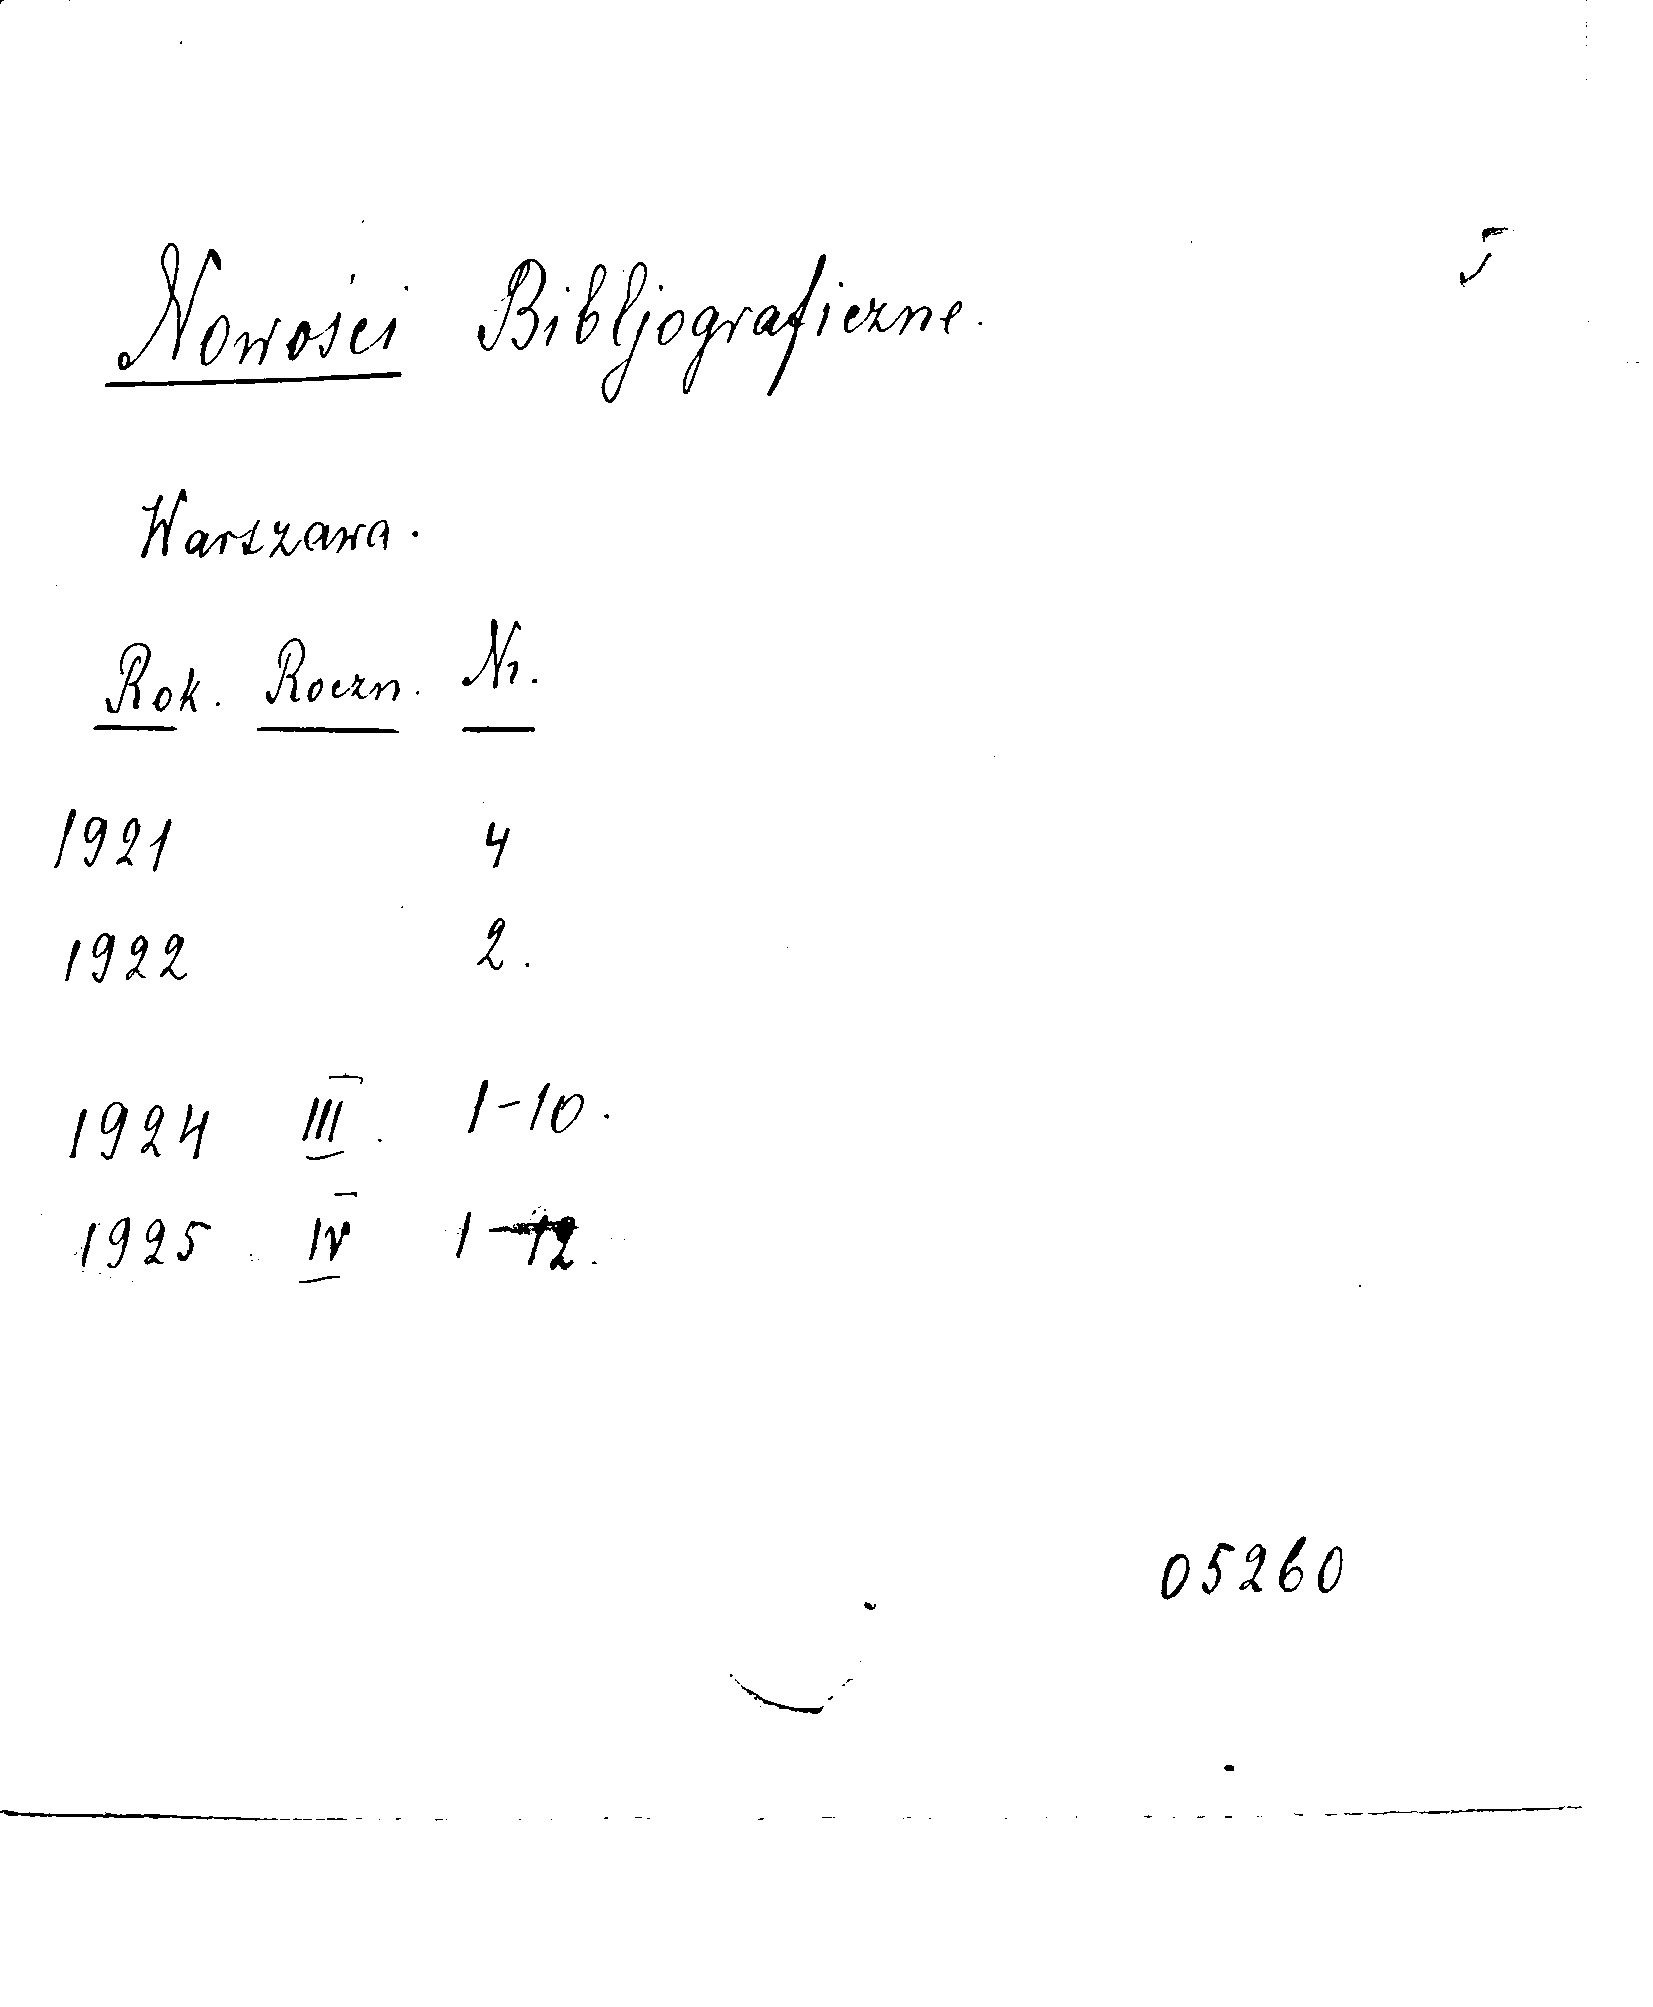 Nowości Bibljograficzne.
Warszawa.
Rok. Roczn. Nr.
1921 4
1922 2.
1924 III. 1-10.
1925 IV 1-12.
05260